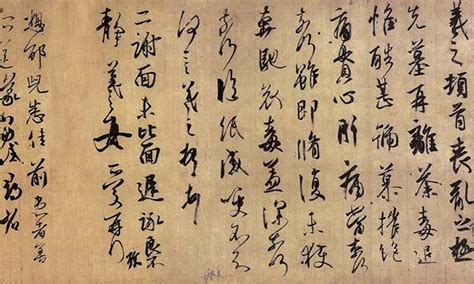 羲之頓首喪亂之極
先墓再離荼毒追
惟酷甚號慕摧絕
痛貫心肝痛當奈何
奈何雖即脩復未獲
奔馳哀毒益深奈何
奈何臨紙感哽不知
何言羲之頓首頓首
二謝面未比面遲詠良不
靜羲之女愛再拜
想邵兒悉佳前患者善